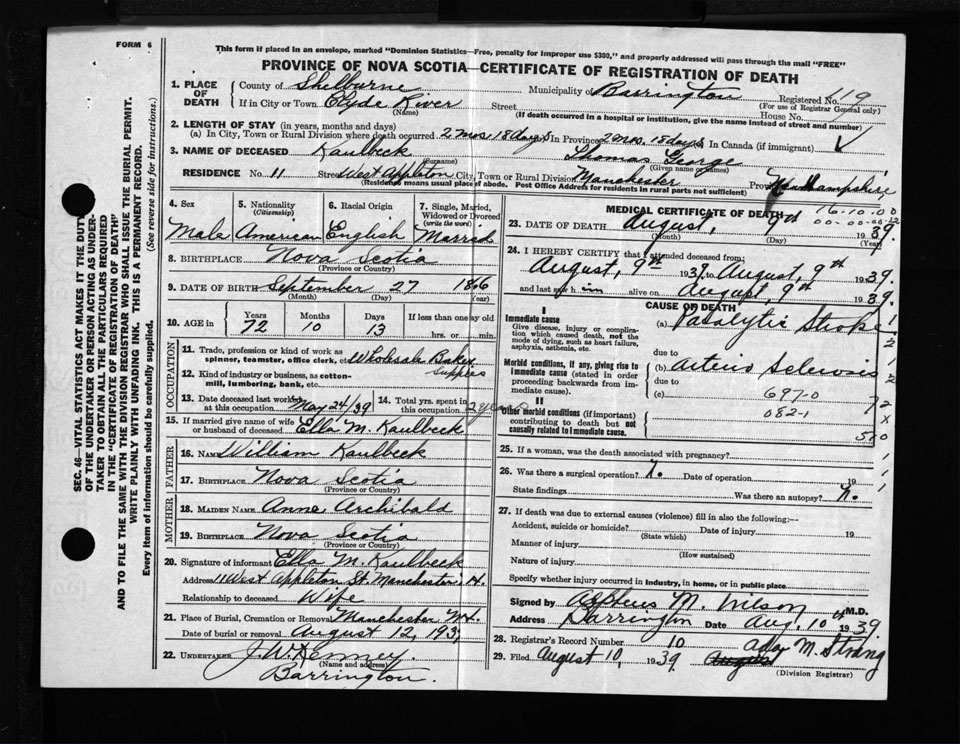 FORM 6
This form if placed in an envelope, marked "Dominion Statistics—Free, penalty for improper use $300," and properly addressed will pass through the mail "FREE"
PROVINCE OF NOVA SCOTIA—CERTIFICATE OF REGISTRATION OF DEATH
1. PLACE OF DEATH County of Shelburne Municipality of Barrington Registered No. 419
(For use of Registrar General only)
If in City or Town Clyde River Street House No.
(Name) (If death occurred in a hospital or institution, give the name instead of street and number)
2. LENGTH OF STAY (in years, months and days)
(a) In City, Town or Rural Division where death occurred 2 mos. 18 days In Province 2 mos. 18 days In Canada (if immigrant)
3. NAME OF DECEASED Kaulbeck Thomas George
(Surname) (Given name or names)
RESIDENCE No. 11 Street West Appleton City, Town or Rural Division Manchester Prov. New Hampshire
(Residence means usual place of abode. Post Office Address for residents in rural parts not sufficient)
4. Sex 5. Nationality (Citizenship) 6. Racial Origin 7. Single, Married, Widowed or Divorced (write the word)
Male American English Married
8. BIRTHPLACE Nova Scotia
(Province or Country)
9. DATE OF BIRTH September 27 1866
(Month) (Day) (Year)
10. AGE in Years Months Days If less than one day old
72 10 13 hrs. or min.
OCCUPATION
11. Trade, profession or kind of work as spinner, teamster, office clerk, etc. Wholesale Bakery
12. Kind of industry or business, as cotton-mill, lumbering, bank, etc. Supplies
13. Date deceased last worked at this occupation May 24/39 14. Total yrs. spent in this occupation
15. If married give name of wife or husband of deceased Ella M. Kaulbeck
FATHER
16. NAME William Kaulbeck
17. BIRTHPLACE Nova Scotia
(Province or Country)
MOTHER
18. MAIDEN NAME Anna Archibald
19. BIRTHPLACE Nova Scotia
(Province or Country)
20. Signature of informant Ella M. Kaulbeck
Address 11 West Appleton St. Manchester N.H.
Relationship to deceased Wife
21. Place of Burial, Cremation or Removal Manchester N.H.
Date of burial or removal August 12, 193
22. UNDERTAKER J. W. Kenney.
(Name and address)
Barrington.
MEDICAL CERTIFICATE OF DEATH
16-10-00
23. DATE OF DEATH August, 9th 1939.
(Month) (Day) (Year)
24. I HEREBY CERTIFY that I attended deceased from
August, 9th 1939 to August, 9th 1939.
and last saw him alive on August, 9th 1939.
CAUSE OF DEATH
I
Immediate cause (a) Paralytic Stroke
Give disease, injury or complication which caused death, not the mode of dying, such as heart failure, asphyxia, asthenia, etc.
due to
Morbid conditions, if any, giving rise to immediate cause (stated in order proceeding backwards from immediate cause). (b) Arterio Sclerosis
due to
(c) 697-0
082-1
II
Other morbid conditions (if important) contributing to death but not causally related to immediate cause.
25. If a woman, was the death associated with pregnancy?
26. Was there a surgical operation? N. Date of operation 19
State findings Was there an autopsy? N.
27. If death was due to external causes (violence) fill in also the following:—
Accident, suicide or homicide? Date of injury 19
(State which)
Manner of injury
(How sustained)
Nature of injury
Specify whether injury occurred in industry, in home, or in public place
Signed by Alpheus M. Wilson M.D.
Address Barrington Date Aug. 10th 1939.
28. Registrar's Record Number 10
29. Filed August 10, 1939 Ada M. Strang
(Division Registrar)
SEC. 46—VITAL STATISTICS ACT MAKES IT THE DUTY OF THE UNDERTAKER OR PERSON ACTING AS UNDERTAKER TO OBTAIN ALL THE PARTICULARS REQUIRED IN THE "CERTIFICATE OF REGISTRATION OF DEATH"
AND TO FILE THE SAME WITH THE DIVISION REGISTRAR WHO SHALL ISSUE THE BURIAL PERMIT.
WRITE PLAINLY WITH UNFADING INK. THIS IS A PERMANENT RECORD.
Every item of information should be carefully supplied. (See reverse side for instructions.)